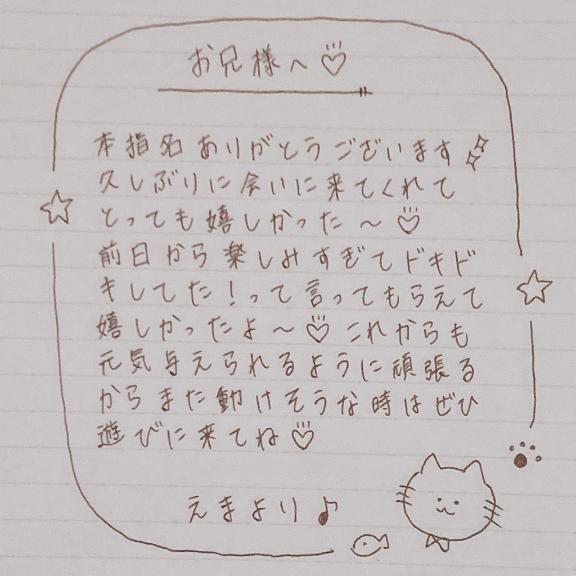 お兄様へ♡
本指名ありがとうございます✨
久しぶりに会いに来てくれて
とっても嬉しかった〜♡
前日から楽しみすぎてドキド
キしてた!って言ってもらえて
嬉しかったよ〜♡これからも
元気与えられるように頑張る
からまた動けそうな時はぜひ
遊びに来てね♡
えまより♪